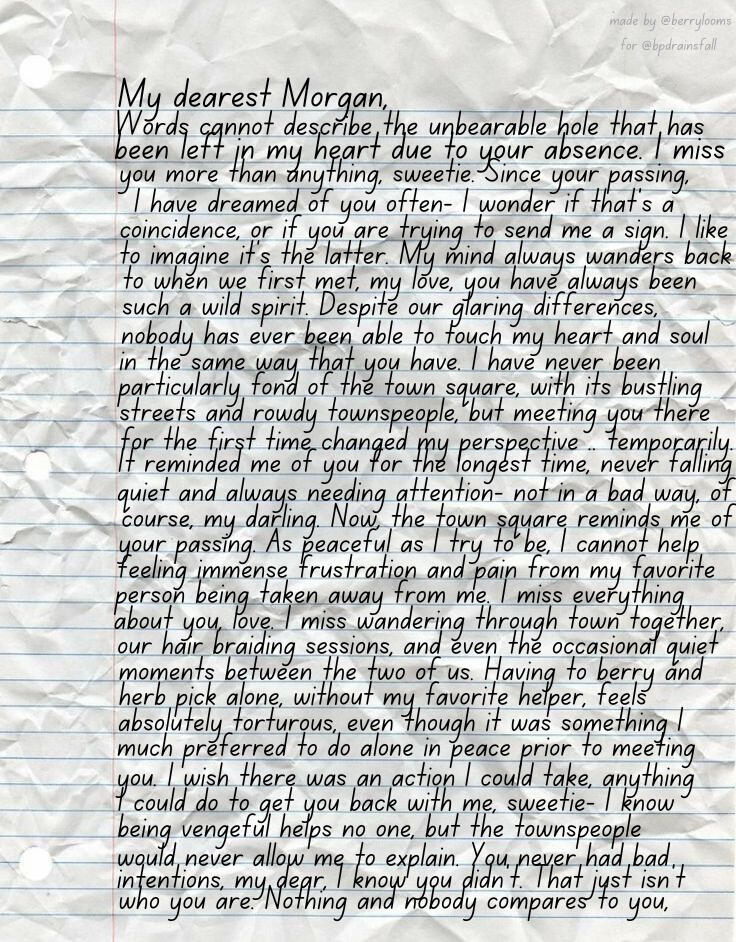 made by @berrylooms
for @bpdrainsfall
My dearest Morgan,
Words cannot describe the unbearable hole that has
been left in my heart due to your absence. I miss
you more than anything, sweetie. Since your passing,
I have dreamed of you often- I wonder if that's a
coincidence, or if you are trying to send me a sign. I like
to imagine it's the latter. My mind always wanders back
to when we first met, my love, you have always been
such a wild spirit. Despite our glaring differences,
nobody has ever been able to touch my heart and soul
in the same way that you have. I have never been
particularly fond of the town square, with its bustling
streets and rowdy townspeople, but meeting you there
for the first time changed my perspective .. temporarily.
It reminded me of you for the longest time, never falling
quiet and always needing attention- not in a bad way, of
course, my darling. Now, the town square reminds me of
your passing. As peaceful as I try to be, I cannot help
feeling immense frustration and pain from my favorite
person being taken away from me. I miss everything
about you, love. I miss wandering through town together,
our hair braiding sessions, and even the occasional quiet
moments between the two of us. Having to berry and
herb pick alone, without my favorite helper, feels
absolutely torturous, even though it was something I
much preferred to do alone in peace prior to meeting
you. I wish there was an action I could take, anything
I could do to get you back with me, sweetie- I know
being vengeful helps no one, but the townspeople
would never allow me to explain. You never had bad
intentions, my dear, I know you didn't. That just isn't
who you are. Nothing and nobody compares to you,